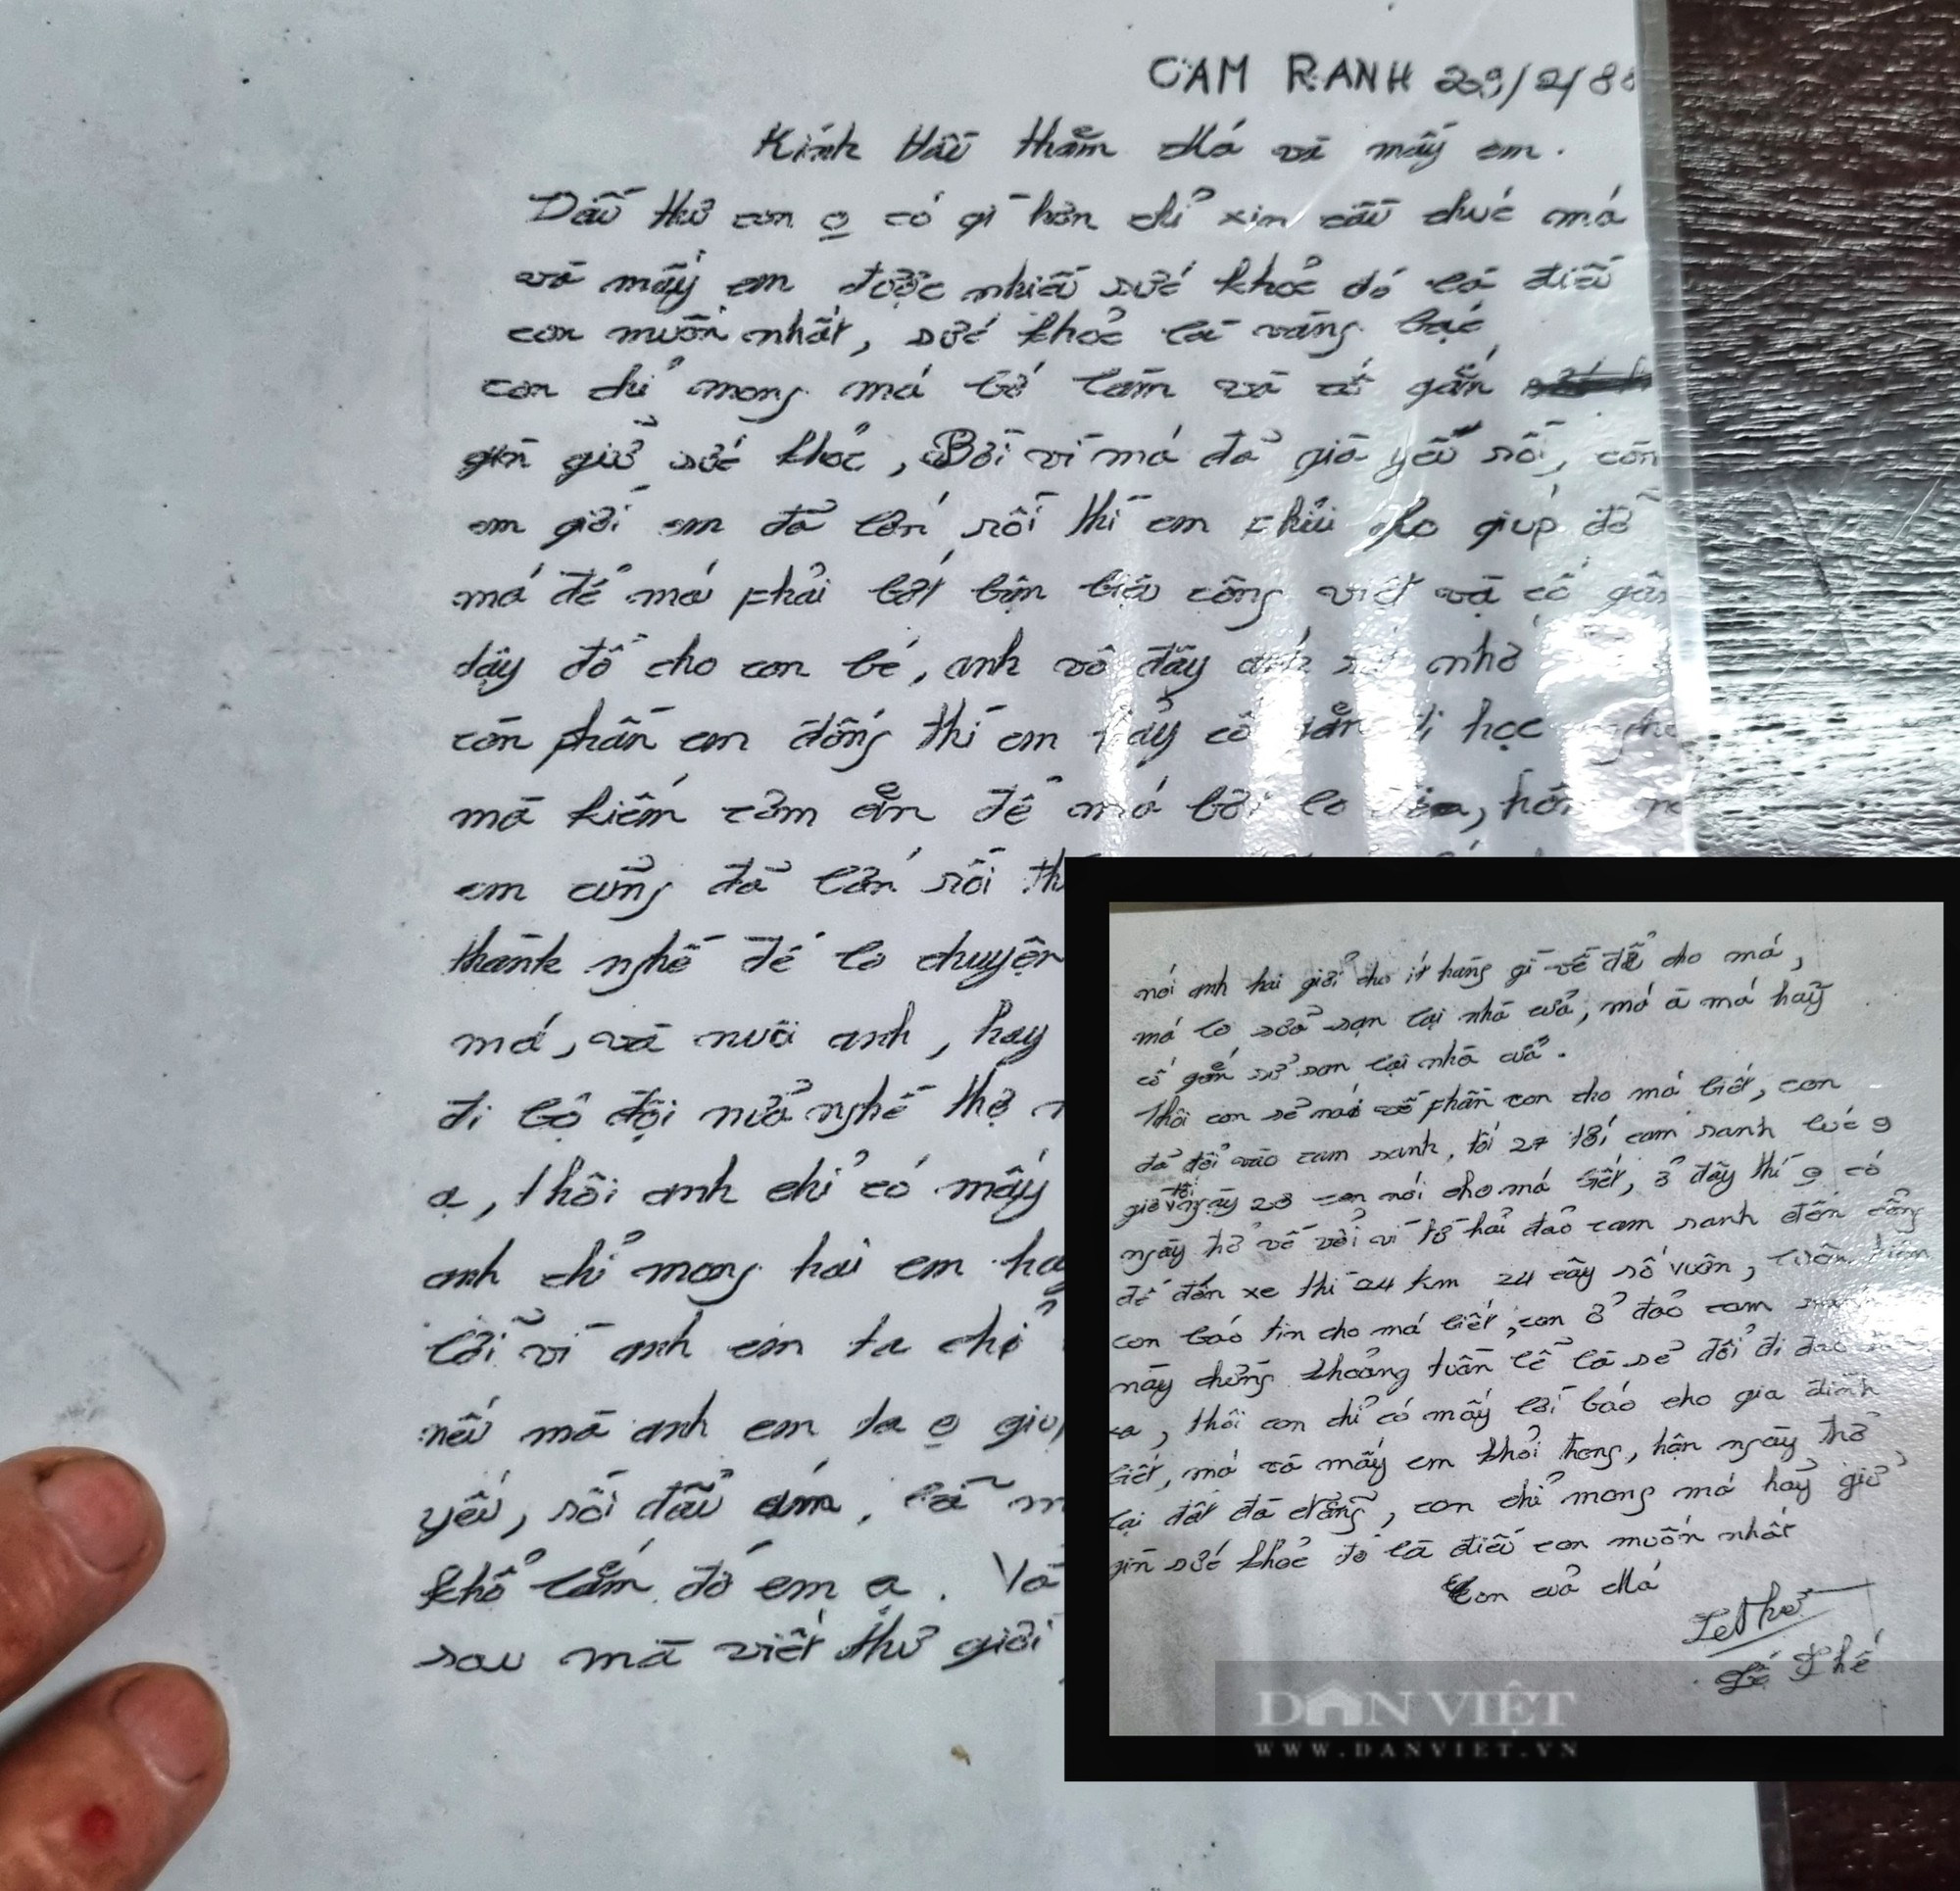 CAM RANH 29/2/88
Kính thư thăm Má và mấy em.
Đầu thư con o có gì hơn chỉ xin cầu chúc má
và mấy em được nhiều sức khỏe đó là điều
con muốn nhất, sức khỏe là vàng bạc
con chỉ mong má bớ làm và cố gắn
gìn giử sức khỏe, Bởi vì má đả già yếu rồi, còn
em giởi em đả lớn rồi thì em phải lo giúp đỡ
má để má phải bớt bận biệu công việt và cố gắn
dậy đổ cho con bé, anh vô đây anh rất nhớ
còn phần em đồng thì em hảy cố gắn đi học nghề
mà kiếm cơm ăn để má bởi lo
em củng đả lớn rồi
thành nghề để lo chuyện
má, và nuôi anh, hay
đi bộ đội nửa nghề thợ
ạ, thôi anh chỉ có mấy
anh chỉ mong hai em
bởi vì anh em ta chỉ
nếu mà anh em ta o
yếu, rồi đầu ám, là
khổ lắm đó em ạ. Và
sau mà viết thư giởi
nói anh hai giởi cho ít hàng gì về để cho má,
má lo sửa sạn lại nhà cửa, má à má hảy
cố gắn sử san lại nhà cửa.
Thôi con sẻ nói về phần con cho má biết, con
đả đổi vào cam ranh, tối 27 tới cam ranh lúc 9
giờ tối ngày 28 con nói cho má biết, ở đây thì o có
ngày thơ về vời vì từ hải đảo cam ranh đến cổng
để đến xe thì 24 km 24 cây số vuôn,
con báo tin cho má biết, con ở đảo cam
này chừng khoảng tuần lể là sẻ đổi đi đảo
xa, thôi con chỉ có mấy lời báo cho gia đình
biết, má và mấy em khỏi trong, hận ngày thơ
lại đất đà dẳng, con chỉ mong má hảy giử
gìn sức khỏe đó là điều con muốn nhất
Con của Má
LeThế
Lê Thế
DÂN VIỆT
WWW.DANVIET.VN